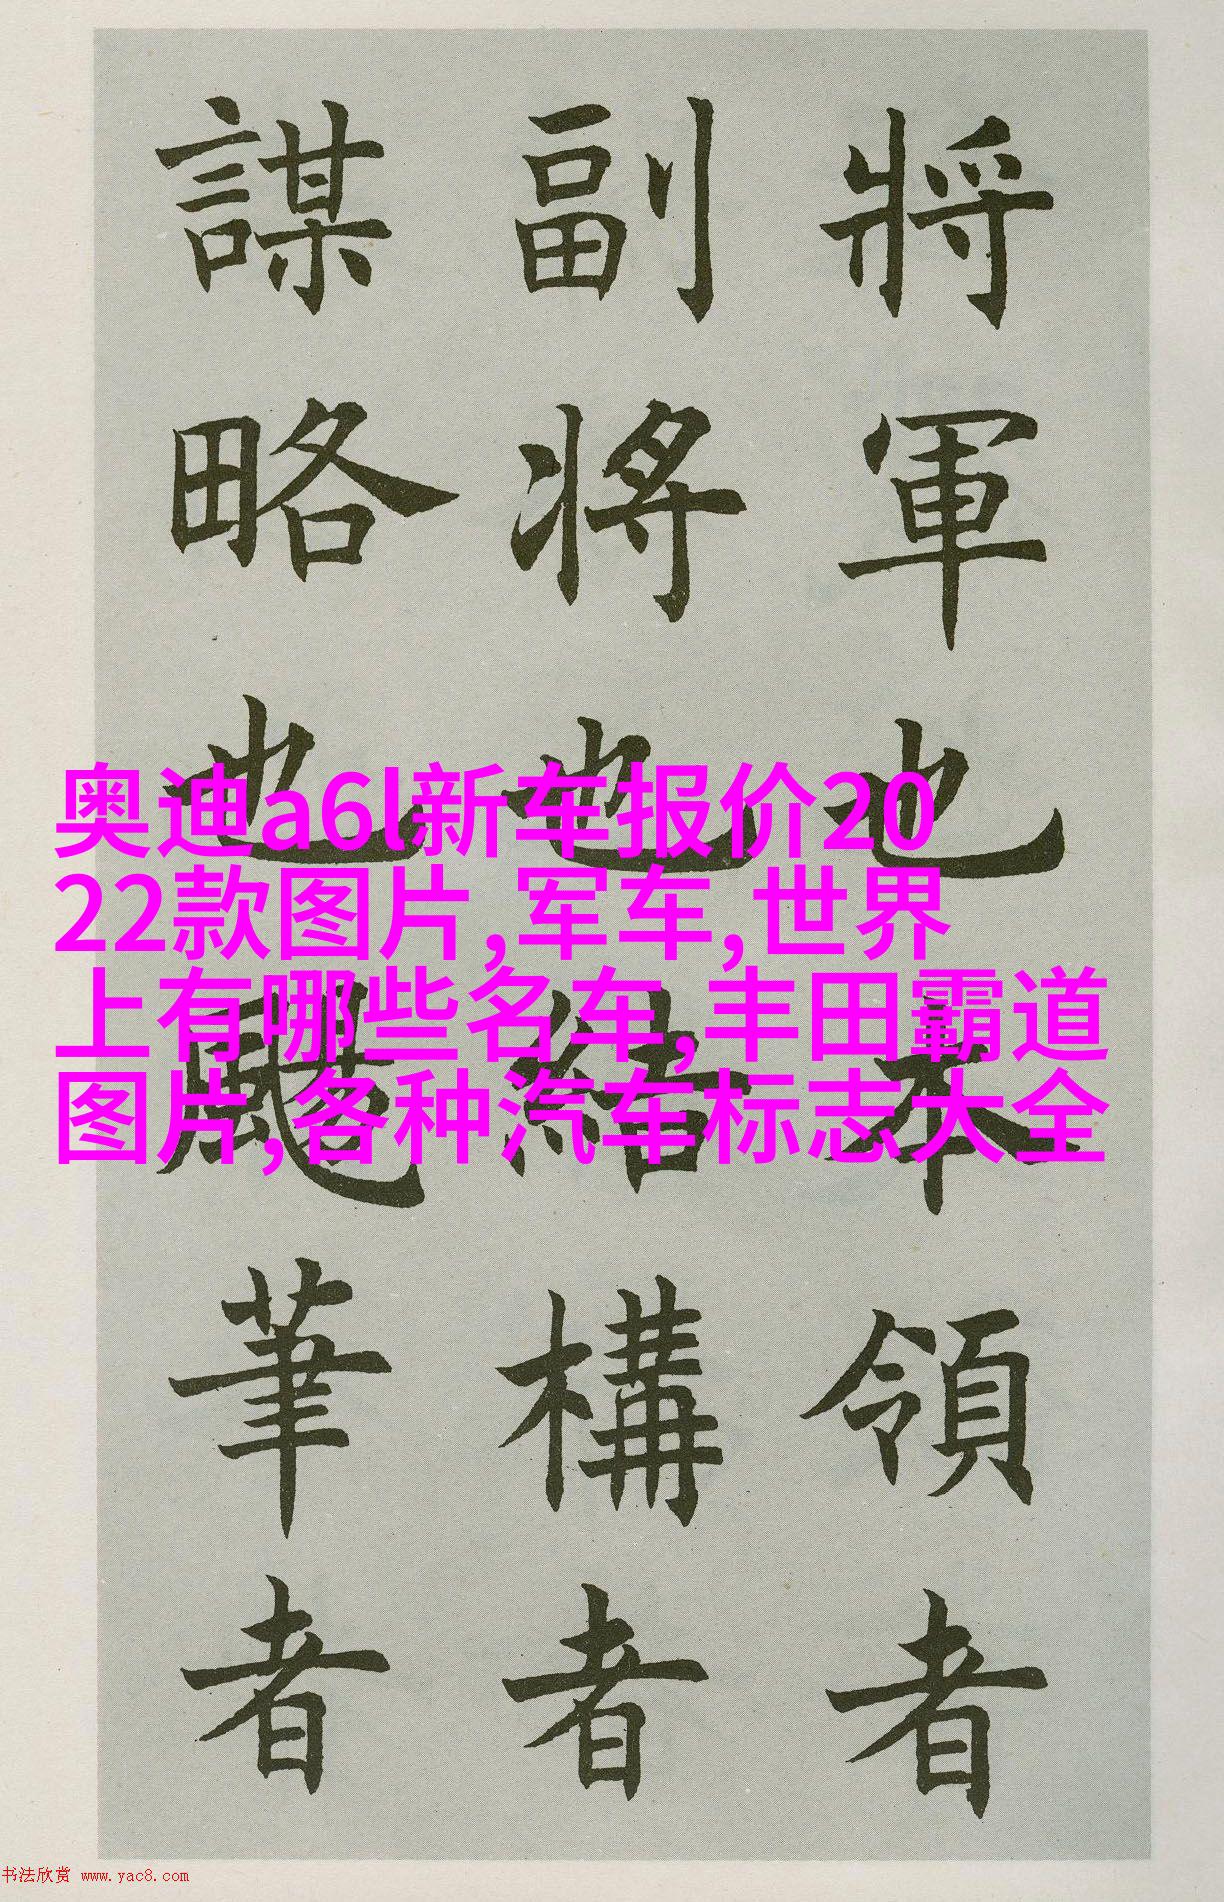 將軍也本領者
副將也結構者
謀略也颺筆者
奥迪a6l新车报价20
22款图片,军车,世界
上有哪些名车,丰田霸道
图片,各种汽车标志大全
书法欣赏 www.yac8.com